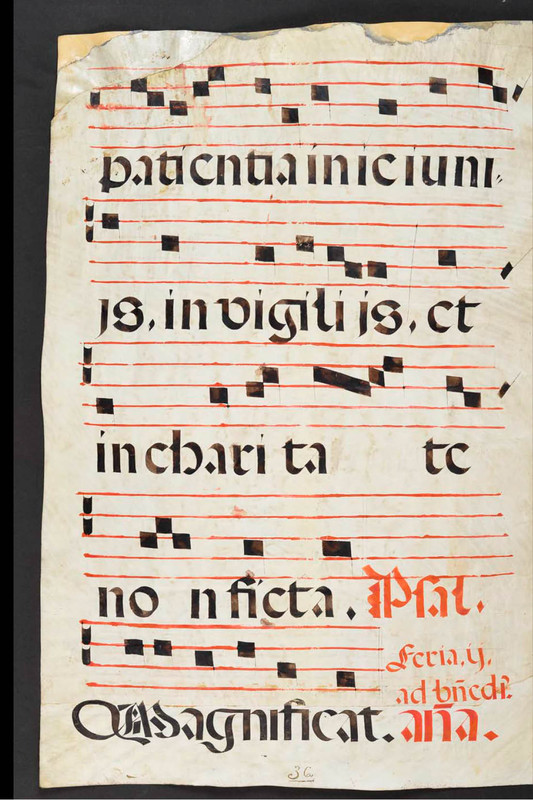 patientia in ieiuni,
js, in vigili js, et
in chari ta te
no n ficta. Psal.
Feria. ij.
ad bñeds.
Magnificat. aña.
36